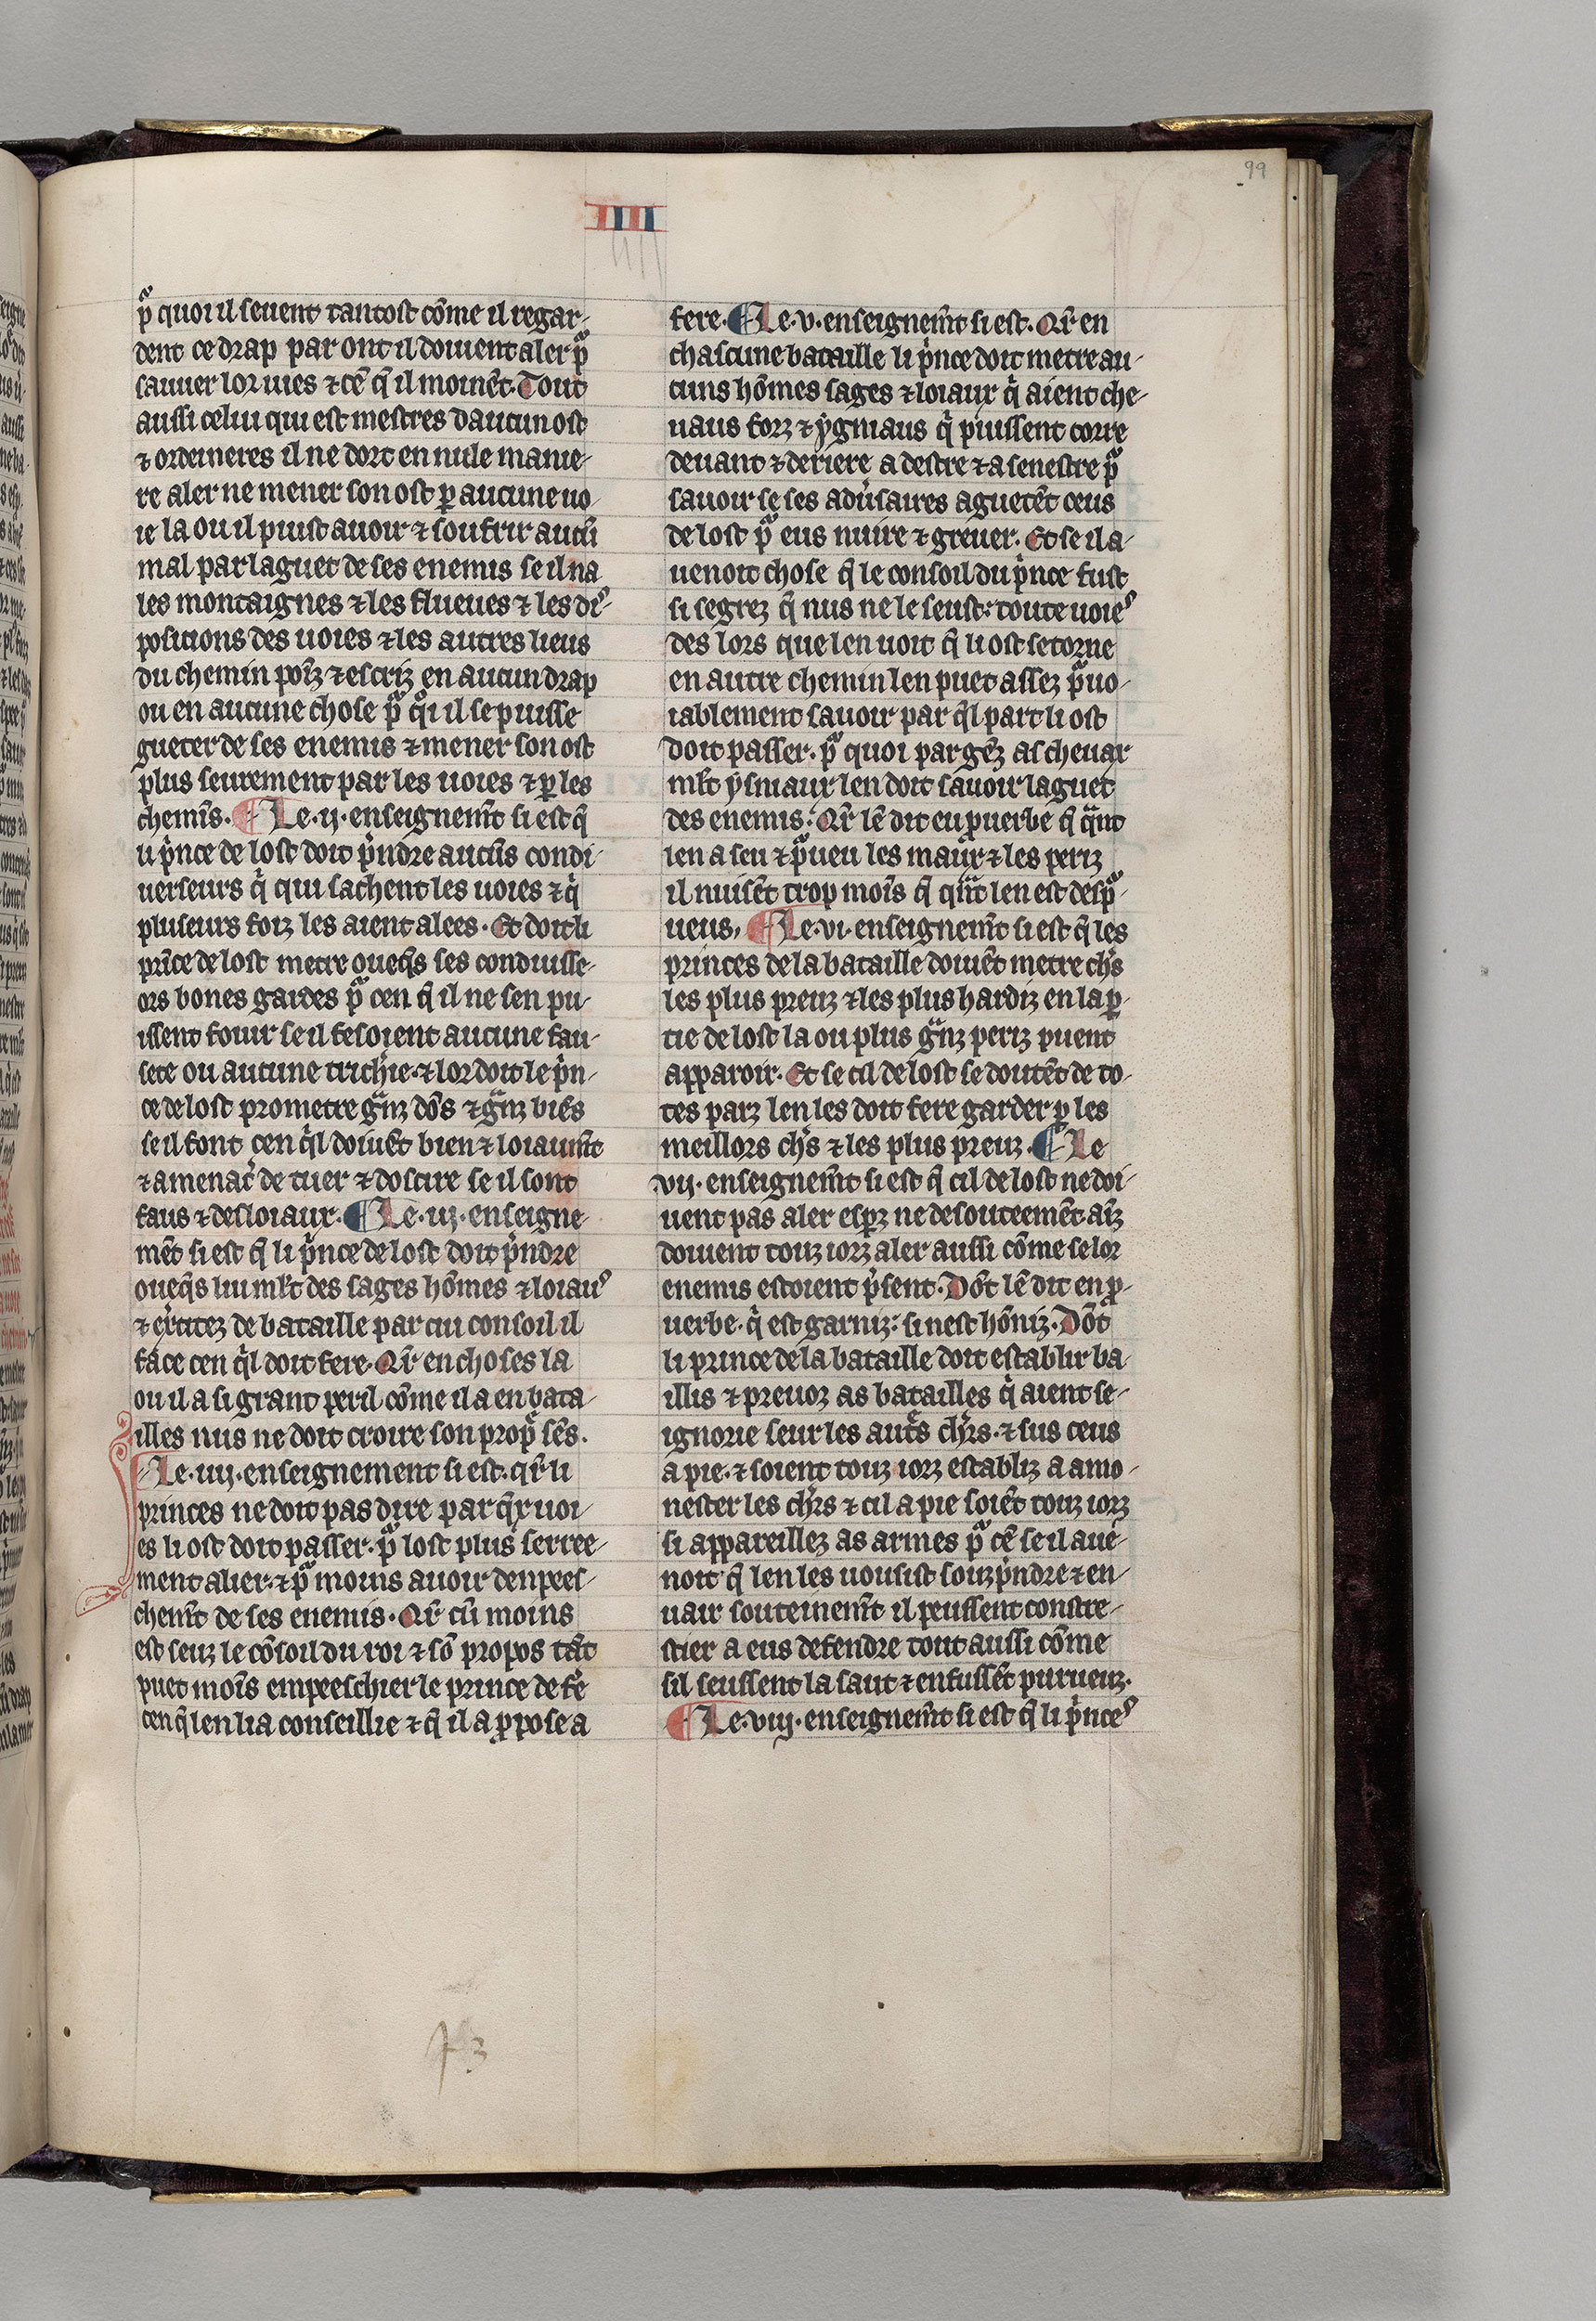 99
IIII
IIII
pͣ quoi il seuent tantost cōme il regar-
dent ce drap par ont il doiuent aler pͣ
sauuer lor uies ⁊ cē q̄ il moinēt. Tout
aussi celui qui est mestres daucun ost
⁊ ordeineres il ne doit en nule manie-
re aler ne mener son ost ꝑ aucune uo-
ie la ou il puist auoir ⁊ soufrir aucū
mal par laguet de ses enemis se il na
les montaignes ⁊ les flueues ⁊ les di-
posicions des uoies ⁊ les autres lieus
du chemin poīz ⁊ escriz en aucun drap
ou en aucune chose pͣ qͥ il se puisse
gueter de ses enemis ⁊ mener son ost
plus seurement par les uoies ⁊ ꝑ les
chemīs. ¶ Le .ij. enseignem̄t si est q̄
li pͥnce de lost doit p̄ndre aucūs condi-
uerseurs qͥ qui sachent les uoies ⁊ qͥ
pluseurs foiz les aient alees. Et doit li
prīce de lost metre oueq̄s ses conduisse-
ors bones gardes pͣ cen q̄ il ne sen pu-
issent fouir se il fesoient aucune fau-
sete ou aucune trich̄ie. ⁊ lor doit le pͥn-
ce de lost prometre gͣnz dōs ⁊ gͣnz biēs
se il font cen q̄l doiuēt bien ⁊ loiaum̄t
⁊ amenac̄ de tuer ⁊ docire se il sont
faus ⁊ desloiaux. ¶ Le .iij. enseigne-
mēt si est q̄ li pͥnce de lost doit p̄ndre
oueq̄s lui ml̄t des sages hōmes ⁊ loiaus
⁊ ex̄citez de bataille par cui consoil il
face cen q̄l doit fere. Qr̄ en choses la
ou il a si grant peril cōme il a en bata-
illes nus ne doit croire son prop̄ sēs.
Le .iiij. enseignement si est. qr̄ li
princes ne doit pas dire par q̄x uoi-
es li ost doit passer. pͣ lost plus serree-
ment alier. ⁊ pͣ moins auoir denpees-
chem̄t de ses enemis. Qr̄ cū moins
est seuz le cōsoil du roi ⁊ sō propos tāt
puet moīs empeeschier le prince de fe᷑
cen q̄ len lia conseillie ⁊ q̄ il a ꝓpose a
fere. ¶ Le .v. enseignem̄t si est. Qr̄ en
chascune bataille li pͥnce doit metre au-
cuns hōmes sages ⁊ loiaux qͥ aient che-
uaus forz ⁊ ygniaus qͥ piussent corre
deuant ⁊ deriere a destre ⁊ a senestre pͣ
sauoir se ses adūsaires aguetēt ceus
de lost pͣ eus nuire ⁊ greuer. Et se il a-
uenoit chose q̄ le consoil du pͥnce fust
si segrez q̄ nus ne le seust: toute uoies
des lors que len uoit q̄ li ost se torne
en autre chemin len puet assez pͣuo-
iablement sauoir par q̄l part li ost
doit passer. pͣ quoi par gēz as cheuax
ml̄t ysniaux len doit sauoir laguet
des enemis. Qr̄ lē dit eu ꝓuerbe q̄ qͣnt
len a seu ⁊ pͣueu les maux ⁊ les periz
il nuisēt trop moīs q̄ qͣnt len est despͣ-
ueus. ¶ Le .vi. enseignem̄t si est q̄ les
princes de la bataille doiuēt metre ch̄s
les plus preuz ⁊ les plus hardiz en la ꝑ-
tie de lost la ou plus gͣnz periz puent
apparoir. Et se cil de lost se doutēt de to-
tes parz len les doit fere garder ꝑ les
meillors ch̄s ⁊ les plus preuz. ¶ Le
vij. enseignem̄t si est q̄ cil de lost ne doi-
uent pas aler esꝑz ne desouteemēt aīz
doiuent touz iorz aler aussi cōme se lor
enemis estoient p̄sent. Dōt lē dit en ꝓ-
uerbe. qͥ est garniz: si nest hōniz. Dōt
li prince de la bataille doit establir ba-
illis ⁊ preuoz as batailles qͥ aient se-
ignorie seur les aut᷑s ch̄rs. ⁊ sus ceus
a pie. ⁊ soient touz iorz establiz a amo-
nester les ch̄rs ⁊ cil a pie soiēt touz iorz
si appareillez as armes pͣ cē se il aue-
noit q̄ len les uousist souzp̄ndre ⁊ en-
uair souteinem̄t il peussent constre-
stier a eus defendre tout aussi cōme
sil seussent la saut ⁊ en fussēt purueuz.
¶ Le .viij. enseignem̄t si est q̄ li pͥnces